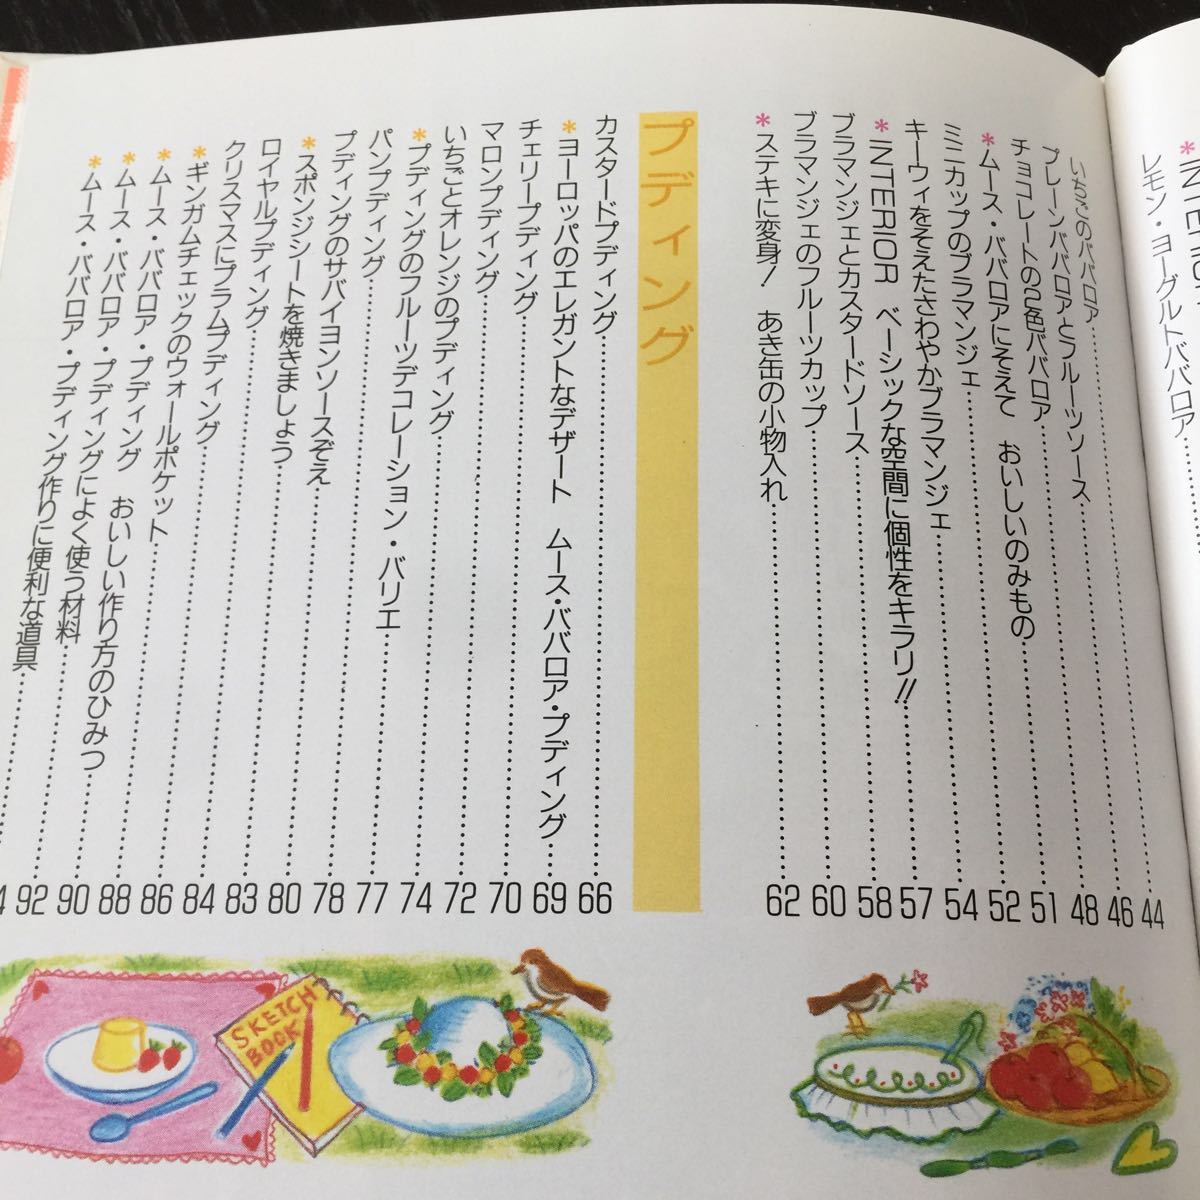 *INTERIOR
レモン・ヨーグルトババロア
いちごのババロア 44
プレーンババロアとフルーツソース 46
チョコレートの2色ババロア 48
*ムース・ババロアにそえて おいしいのみもの 51
ミニカップのブラマンジェ 52
キーウィをそえたさわやかブラマンジェ 54
*INTERIOR ベーシックな空間に個性をキラリ!! 57
ブラマンジェとカスタードソース 58
ブラマンジェのフルーツカップ 60
*ステキに変身! あき缶の小物入れ 62
プディング
カスタードプディング 66
*ヨーロッパのエレガントなデザート ムース・ババロア・プディング 69
チェリープディング 70
マロンプディング 72
いちごとオレンジのプディング 74
*プディングのフルーツデコレーション・バリエ 77
パンプディング 78
プディングのサバイヨンソースぞえ 80
*スポンジシートを焼きましょう 83
ロイヤルプディング 84
クリスマスにプラムプディング 86
*ギンガムチェックのウォールポケット 88
*ムース・ババロア・プディング おいしい作り方のひみつ 90
*ムース・ババロア・プディングによく使う材料 92
*ムース・ババロア・プディング作りに便利な道具 4
SKETCH
BOOK